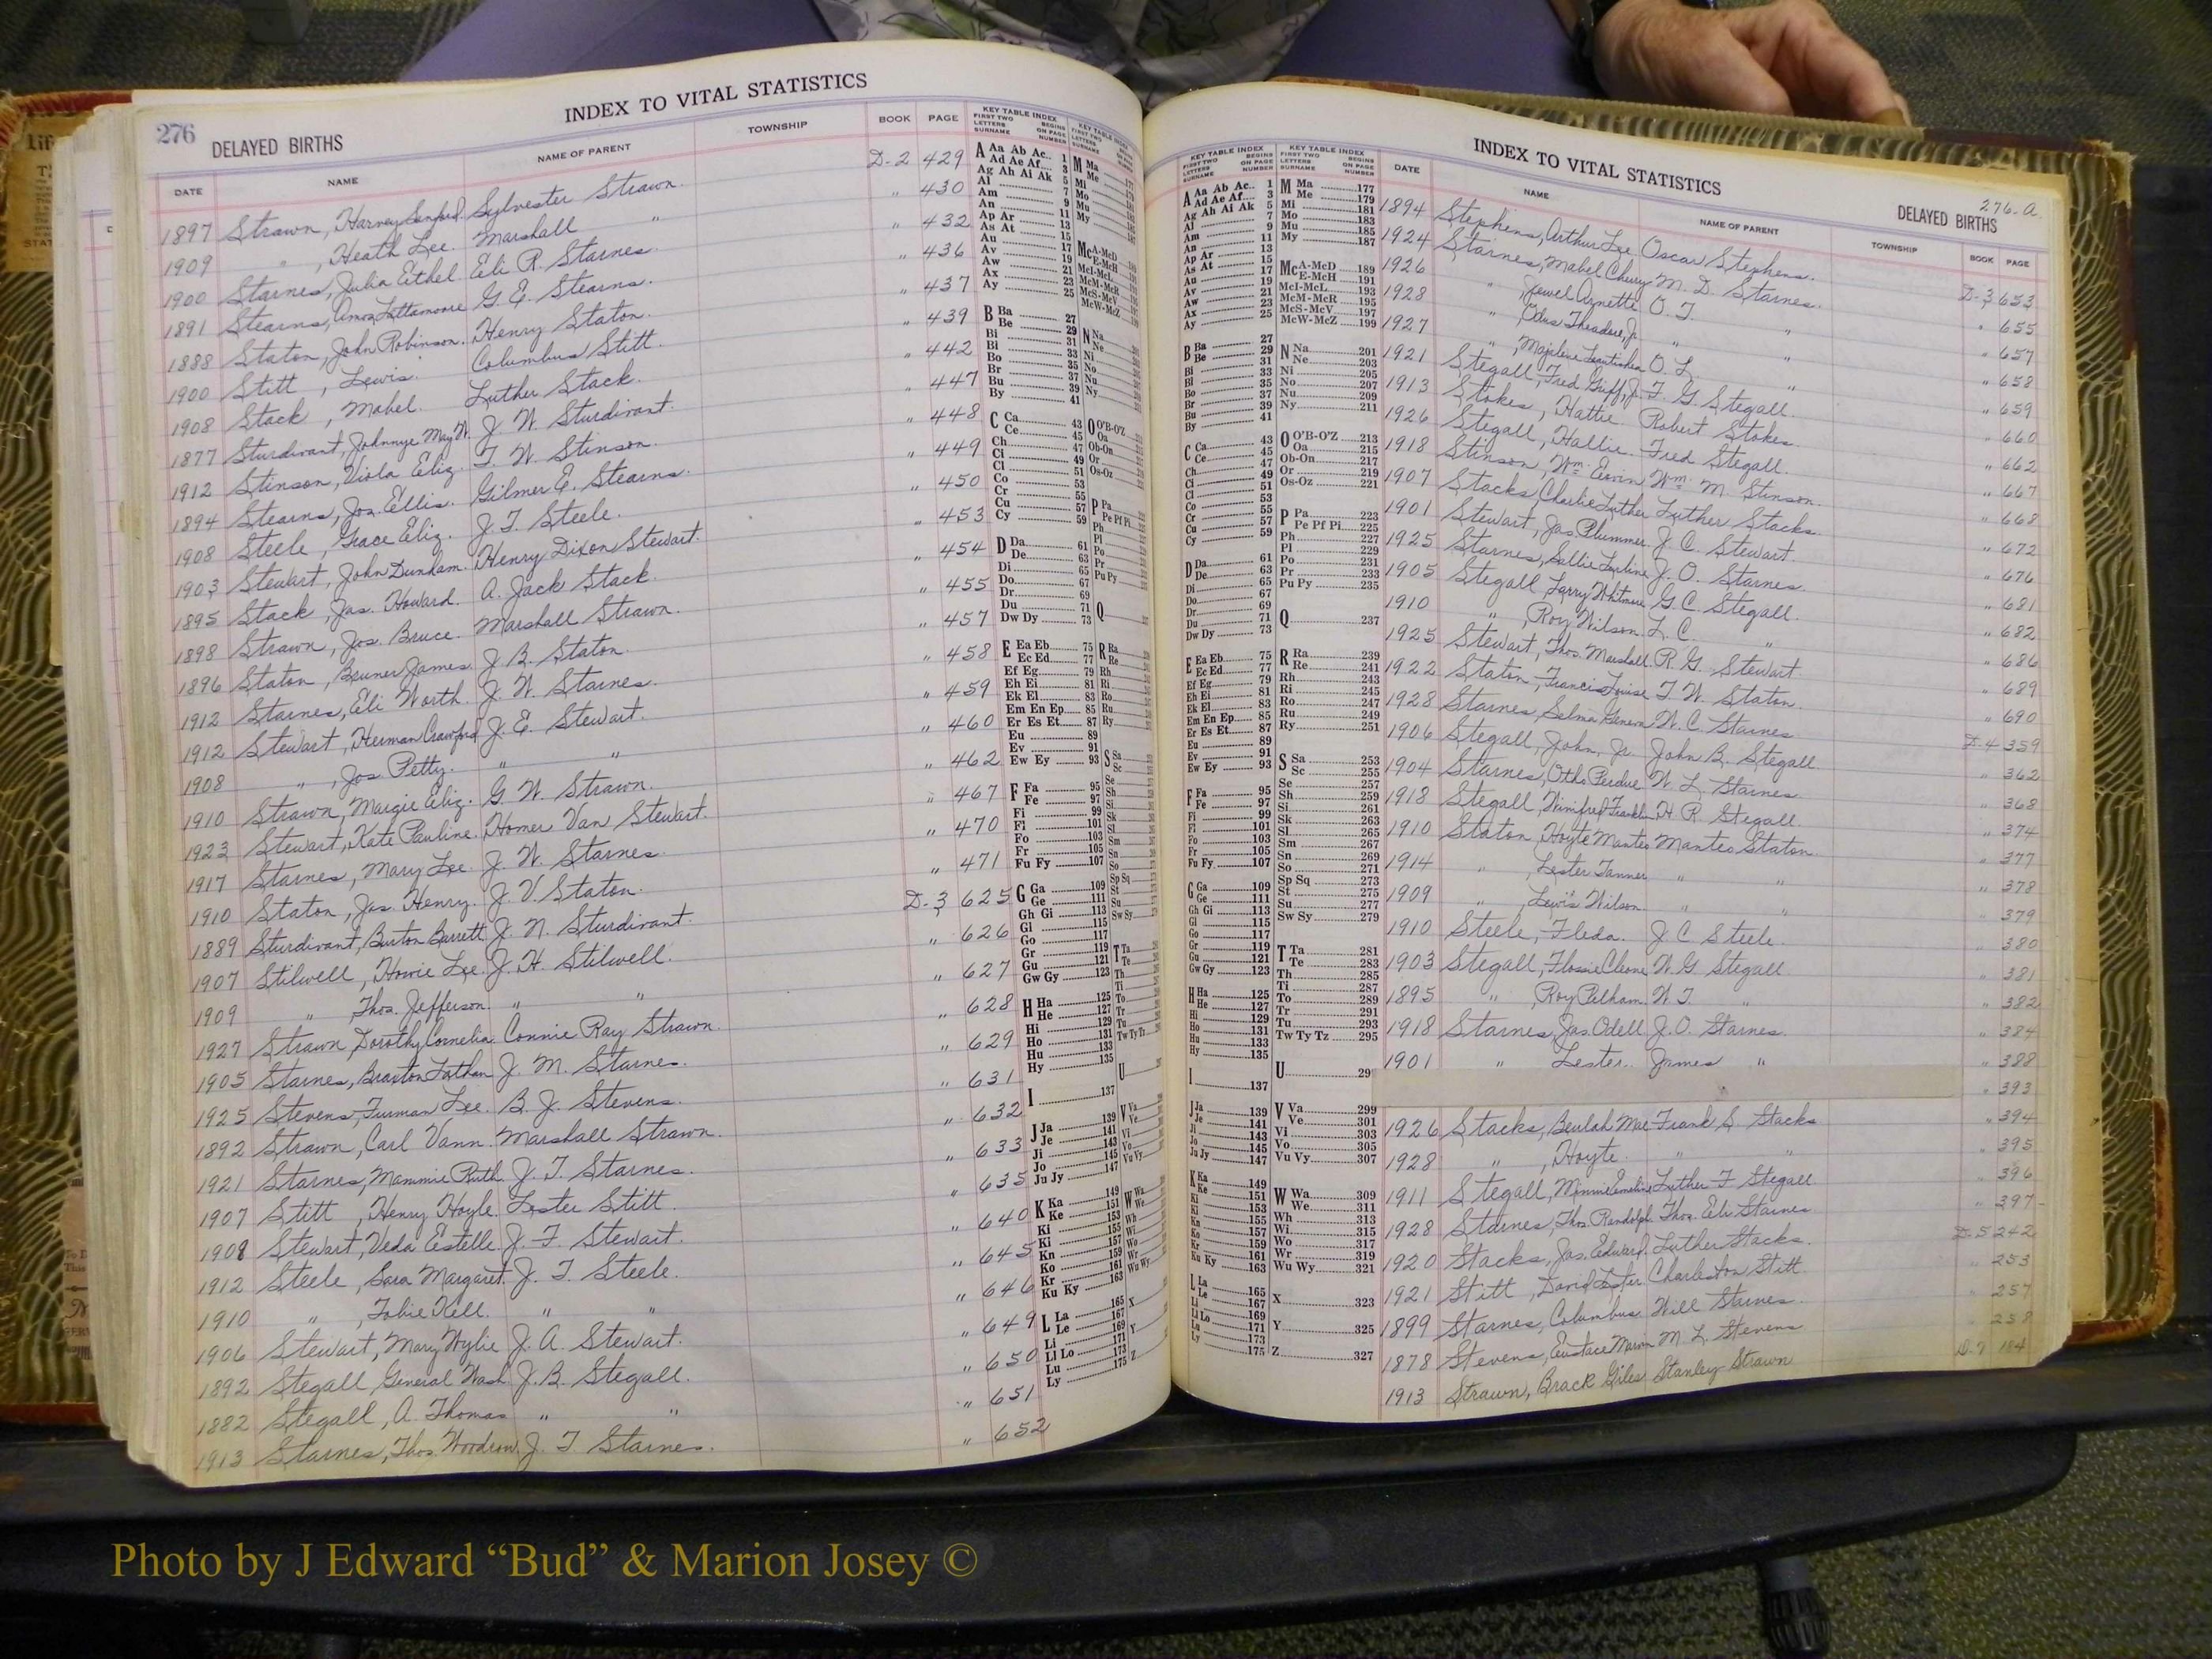 276
DELAYED BIRTHS
INDEX TO VITAL STATISTICS
DATE NAME NAME OF PARENT TOWNSHIP BOOK PAGE
1897 Strawn, Harvey Sanford. Sylvester Strawn. D-2 429
1909 " , Heath Lee. Marshall " " 430
1900 Starnes, Julia Ethel Eli R. Starnes. " 432
1891 Stearns, Amos Lattamoore G. E. Stearns. " 436
1888 Staton, John Robinson. Henry Staton. " 437
1900 Stitt, Lewis. Columbus Stitt. " 439
1908 Stack, Mabel. Luther Stack. " 442
1877 Sturdivant, Johnnye May W. J. W. Sturdivant. " 447
1912 Stinson, Viola Eliz. T. W. Stinson. " 448
1894 Stearns, Jos. Ellis. Gilmer E. Stearns. " 449
1908 Steele, Grace Eliz. J. T. Steele. " 450
1903 Stewart, John Dunham. Henry Dixon Stewart. " 453
1895 Stack, Jas. Howard. A. Jack Stack. " 454
1898 Strawn, Jos. Bruce. Marshall Strawn. " 455
1896 Staton, Bruner James. J. B. Staton. " 457
1912 Starnes, Eli Worth. J. W. Starnes. " 458
1912 Stewart, Herman Crawford J. E. Stewart. " 459
1908 " , Jos Petty. " " " 460
1910 Strawn, Margie Eliz. G. W. Strawn. " 462
1923 Stewart, Kate Pauline. Homer Van Stewart. " 467
1917 Starnes, Mary Lee. J. W. Starnes. " 470
1910 Staton, Jas. Henry. J. V. Staton. " 471
1889 Sturdivant, Burton Barrett J. N. Sturdivant. D-3 625
1907 Stilwell, Howie Lee. J. H. Stilwell. " 626
1909 " Thos. Jefferson. " " " 627
1927 Strawn, Dorothy Cornelia Connie Ray Strawn. " 628
1905 Starnes, Braxton Lathan J. M. Starnes. " 629
1925 Stevens, Furman Lee. B. J. Stevens. " 631
1892 Strawn, Carl Vann. Marshall Strawn. " 632
1921 Starnes, Mammie Ruth J. T. Starnes. " 633
1907 Stitt, Henry Hoyle. Lester Stitt. " 635
1908 Stewart, Veda Estelle. J. F. Stewart. " 640
1912 Steele, Sara Margaret. J. T. Steele. " 645
1910 " , Tobie Kell. " " " 646
1906 Stewart, Mary Wylie J. A. Stewart. " 649
1892 Stegall General Wash. J. B. Stegall. " 650
1882 Stegall, A. Thomas " " " 651
1913 Starnes, Thos. Woodrow. J. T. Starnes. " 652
KEY TABLE INDEX
FIRST TWO LETTERS SURNAME BEGINS ON PAGE NUMBER
INDEX TO VITAL STATISTICS
276-A.
DELAYED BIRTHS
KEY TABLE INDEX KEY TABLE INDEX
FIRST TWO LETTERS SURNAME BEGINS ON PAGE NUMBER
A Aa Ab Ac.. 1
Ad Ae Af... 3
Ag Ah Ai Ak 5
Al 7
Am 9
An 11
Ap Ar 13
As At 15
Au 17
Av 19
Aw 21
Ax 23
Ay 25
B Ba 27
Be 29
Bi 31
Bl 33
Bo 35
Br 37
Bu 39
By 41
C Ca 43
Ce 45
Ch 47
Ci 49
Cl 51
Co 53
Cr 55
Cu 57
Cy 59
D Da 61
De 63
Di 65
Do 67
Dr 69
Du 71
Dw Dy 73
E Ea Eb 75
Ec Ed 77
Ef Eg 79
Eh Ei 81
Ek El 83
Em En Ep 85
Er Es Et 87
Eu 89
Ev 91
Ew Ey 93
F Fa 95
Fe 97
Fi 99
Fl 101
Fo 103
Fr 105
Fu Fy 107
G Ga 109
Ge 111
Gh Gi 113
Gl 115
Go 117
Gr 119
Gu 121
Gw Gy 123
H Ha 125
He 127
Hi 129
Ho 131
Hu 133
Hy 135
I 137
J Ja 139
Je 141
Ji 143
Jo 145
Ju Jy 147
K Ka 149
Ke 151
Ki 153
Kl 155
Kn 157
Ko 159
Kr 161
Ku Ky 163
L La 165
Le 167
Li 169
Ll Lo 171
Lu 173
Ly 175
M Ma 177
Me 179
Mi 181
Mo 183
Mu 185
My 187
Mc A-McD 189
E-McH 191
McI-McL 193
McM-McR 195
McS-McV 197
McW-McZ 199
N Na 201
Ne 203
Ni 205
No 207
Nu 209
Ny 211
O O'B-O'Z 213
Oa 215
Ob-On 217
Or 219
Os-Oz 221
P Pa 223
Pe Pf Pi 225
Ph 227
Pl 229
Po 231
Pr 233
Pu Py 235
Q 237
R Ra 239
Re 241
Rh 243
Ri 245
Ro 247
Ru 249
Ry 251
S Sa 253
Sc 255
Se 257
Sh 259
Si 261
Sk 263
Sl 265
Sm 267
Sn 269
So 271
Sp Sq 273
St 275
Su 277
Sw Sy 279
T Ta 281
Te 283
Th 285
Ti 287
To 289
Tr 291
Tu 293
Tw Ty Tz 295
U 29
V Va 299
Ve 301
Vi 303
Vo 305
Vu Vy 307
W Wa 309
We 311
Wh 313
Wi 315
Wo 317
Wr 319
Wu Wy 321
X 323
Y 325
Z 327
DATE NAME NAME OF PARENT TOWNSHIP BOOK PAGE
1894 Stephens, Arthur Lee. Oscar Stephens. D-3 653
1924 Starnes, Mabel Cheury M. D. Starnes. " 655
1926 " Jewel Arnette O. T. " " 657
1928 " , Odus Theadore, Jr. " " " 658
1927 " , Majalene O. L. " " 659
1921 Stegall, Fred Griff, Jr. F. G. Stegall. " 660
1913 Stokes, Hattie. Robert Stokes. " 662
1926 Stegall, Hallie. Fred Stegall. " 667
1918 Stinson, Wm. Ervin Wm. M. Stinson. " 668
1907 Stacks, Charlie Luther Luther Stacks. " 672
1901 Stewart, Jas. Plummer. J. C. Stewart. " 676
1925 Starnes, Sallie Lurline J. O. Starnes. " 681
1905 Stegall, Larry Whitmore G. C. Stegall. " 682
1910 " , Roy Wilson. L. C. " " 686
1925 Stewart, Thos. Marshall. R. G. Stewart " 689
1922 Staton, Francis Louise T. W. Staton. " 690
1928 Starnes, Selma Geneva W. C. Starnes D-4 359
1906 Stegall, John, Jr. John B. Stegall " 362
1904 Starnes, Otho Perdue W. L. Starnes " 368
1918 Stegall, Winifred Franklin H. R. Stegall " 374
1910 Staton, Hoyte Manteo Manteo Staton. " 377
1914 " , Lester Tanner " " " 378
1909 " , Lewis Wilson. " " " 379
1910 Steele, Fleda. J. C. Steele. " 380
1903 Stegall, Flossie Cleone W. G. Stegall " 381
1895 " , Roy Pelham. W. T. " " 382
1918 Starnes, Jas. Odell J. O. Starnes. " 384
1901 " Lester. James " " 388
" 393
1926 Stacks, Beulah Mae Frank S. Stacks " 394
1928 " , Hoyte. " " " 395
1911 Stegall, Minnie Emeline Luther F. Stegall " 396
1928 Starnes, Thos. Randolph. Thos. Eli Starnes " 397
1920 Stacks, Jas. Edward. Luther Stacks. D-5 242
1921 Stitt, David Lester Charleston Stitt " 253
1899 Starnes, Columbus. Will Starnes " 257
1878 Stevens, Eustace Marvin M. L. Stevens " 258
1913 Strawn, Brack Giles Stanley Strawn D-7 184
Photo by J Edward “Bud” & Marion Josey ©